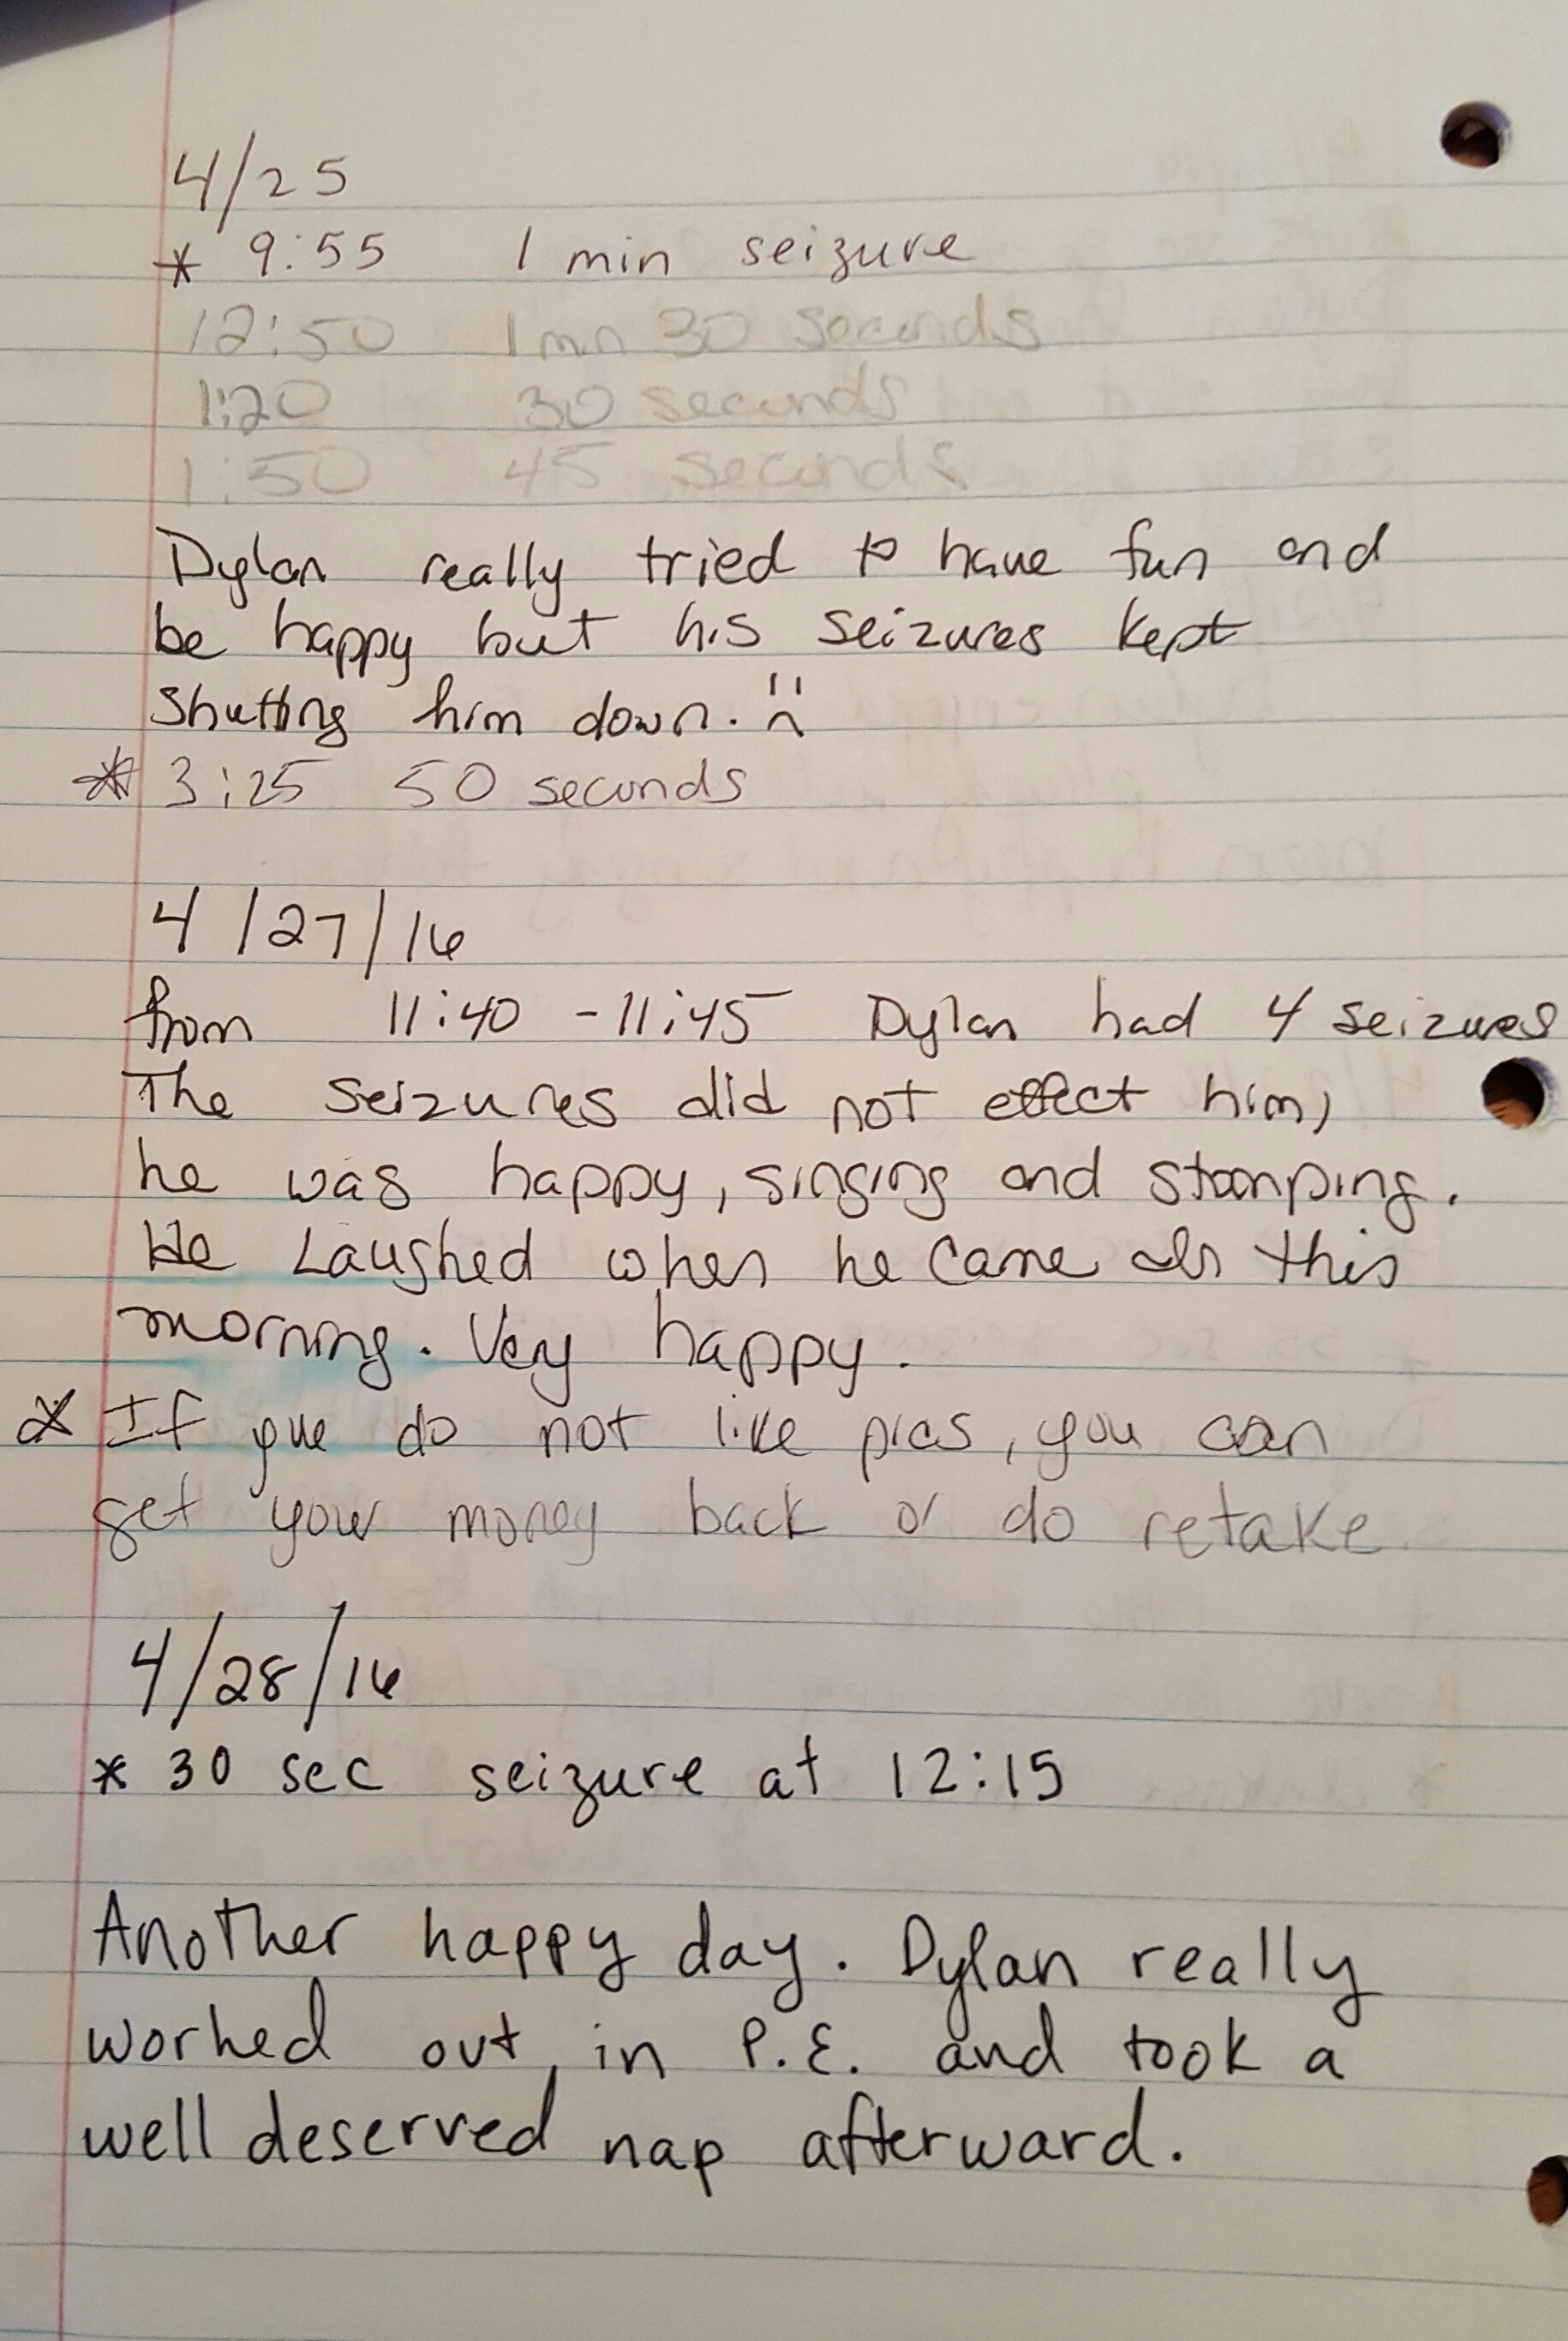 4/25
* 9:55 1 min seizure
12:50 1 min 30 seconds
1:20 30 seconds
1:50 45 seconds
Dylan really tried to have fun and
be happy but his seizures kept
shutting him down. :(
* 3:25 50 seconds
4/27/16
from 11:40 - 11:45 Dylan had 4 seizures
The seizures did not effect him,
he was happy, singing and stomping.
He Laughed when he came in this
morning. Very happy.
* If you do not like pics, you can
get your money back or do retake.
4/28/16
* 30 sec seizure at 12:15
Another happy day. Dylan really
worked out in P.E. and took a
well deserved nap afterward.